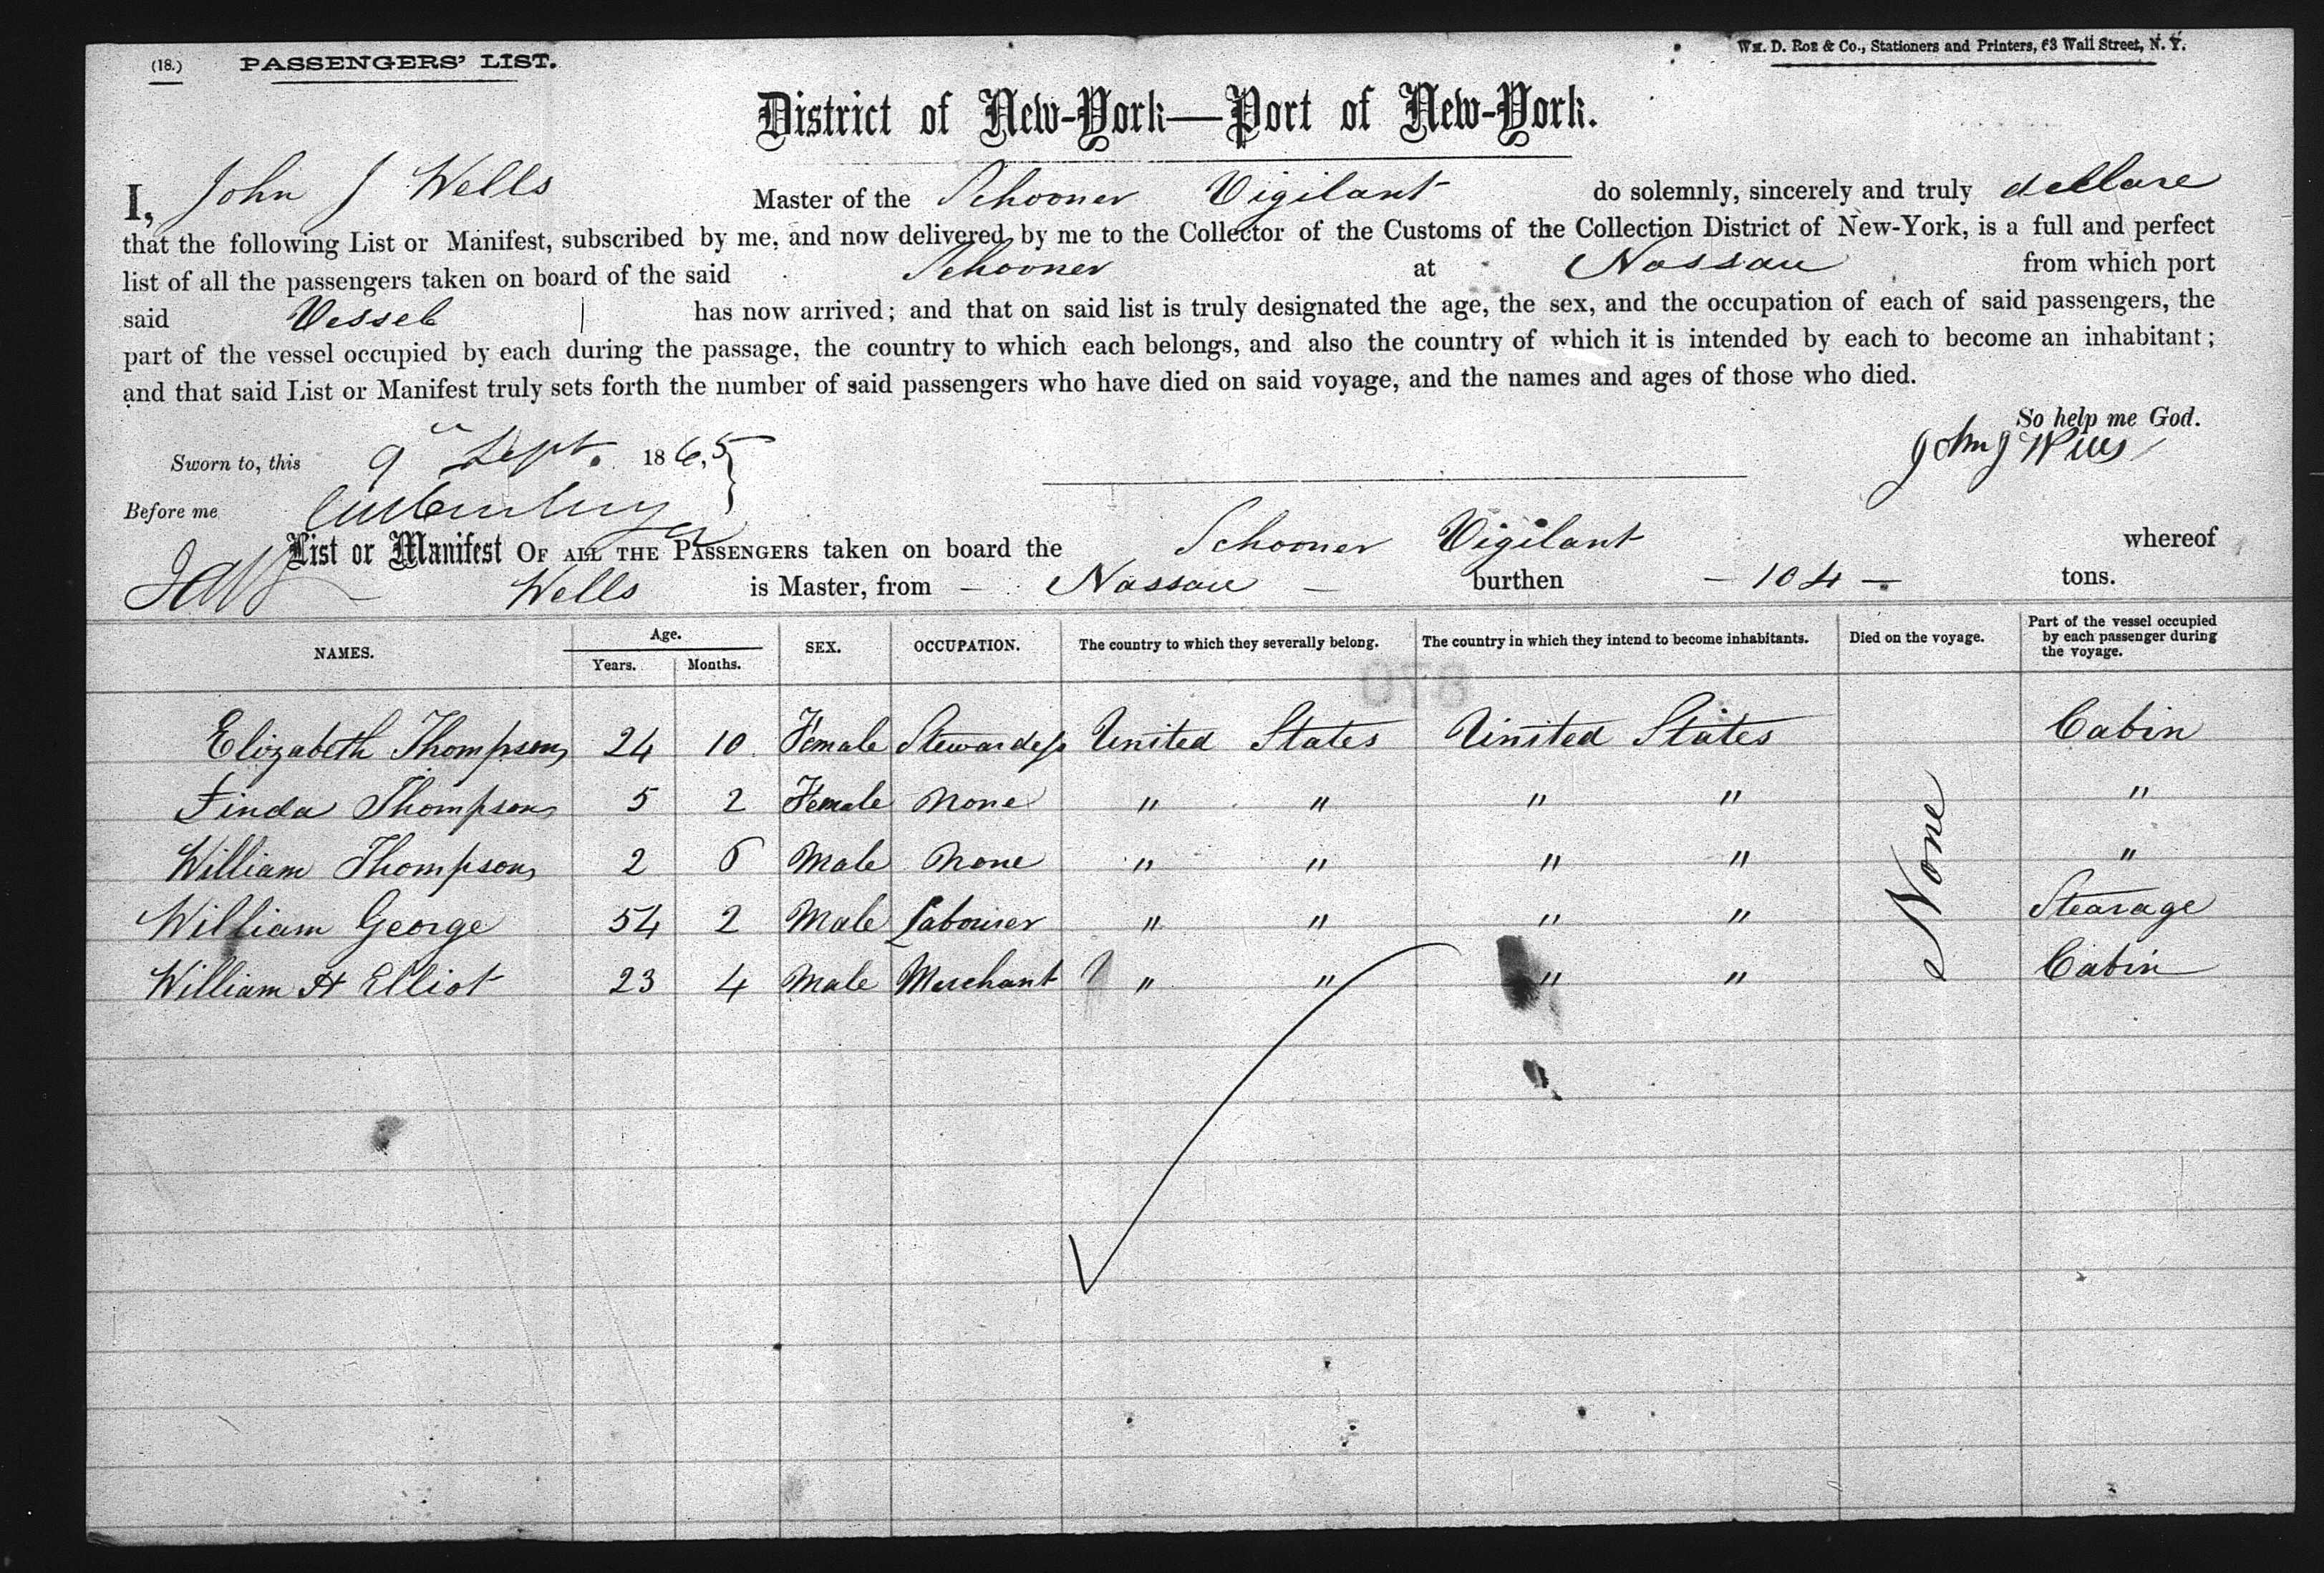 (18.) PASSENGERS' LIST. Wm. D. Roe & Co., Stationers and Printers, 63 Wall Street, N. Y.
District of New-York—Port of New-York.
I, John J Wells Master of the Schooner Vigilant do solemnly, sincerely and truly declare
that the following List or Manifest, subscribed by me, and now delivered by me to the Collector of the Customs of the Collection District of New-York, is a full and perfect
list of all the passengers taken on board of the said Schooner at Nassau from which port
said Vessel has now arrived; and that on said list is truly designated the age, the sex, and the occupation of each of said passengers, the
part of the vessel occupied by each during the passage, the country to which each belongs, and also the country of which it is intended by each to become an inhabitant;
and that said List or Manifest truly sets forth the number of said passengers who have died on said voyage, and the names and ages of those who died.
So help me God.
Sworn to, this 9 Sept. 1865 John J Wells
Before me
List or Manifest OF ALL THE PASSENGERS taken on board the Schooner Vigilant whereof
Wells is Master, from — Nassau — burthen — 104 — tons.
NAMES. Age. Years. Months. SEX. OCCUPATION. The country to which they severally belong. The country in which they intend to become inhabitants. Died on the voyage. Part of the vessel occupied by each passenger during the voyage.
Elizabeth Thompson 24 10 Female Stewardess United States United States Cabin
Finda Thompson 5 2 Female None " " " " "
William Thompson 2 6 Male None " " " " "
William George 54 2 Male Labourer " " " " Stearage
William H Elliot 23 4 Male Merchant " " " " Cabin
None